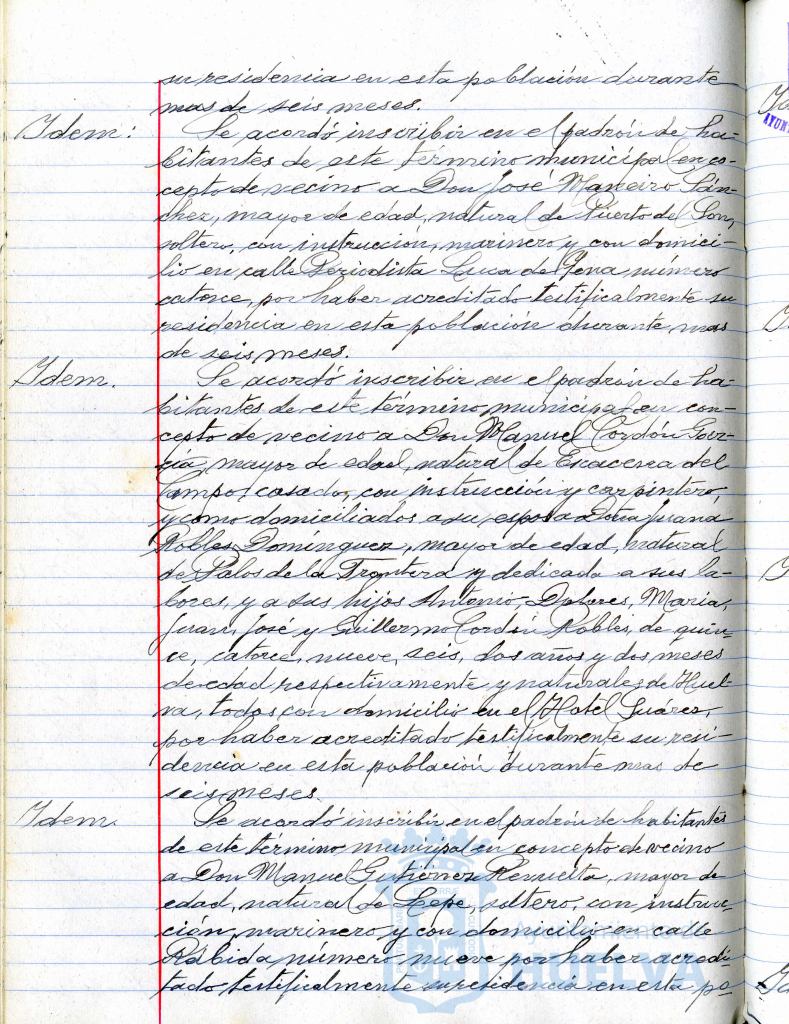 su residencia en esta población durante
mas de seis meses.
Idem: Se acordó inscribir en el padrón de ha-
bitantes de este término municipal en co-
cepto de vecino a Don José Maneiro Sán-
chez, mayor de edad, natural de Puerto del Son,
soltero, con instrucción, marinero y con domici-
lio en calle Periodista Luca de Tena, número
catorce, por haber acreditado testificalmente su
residencia en esta población durante mas
de seis meses.
Idem. Se acordó inscribir en el padrón de ha-
bitantes de este término municipal en con-
cepto de vecino a Don Manuel Cordón Gar-
cía, mayor de edad, natural de Escacena del
Campo, casado, con instrucción y carpintero,
y como domiciliados a su esposa Doña Juana
Robles Domínguez, mayor de edad, natural
de Palos de la Frontera y dedicada a sus la-
bores, y a sus hijos Antonio, Dolores, María,
Juan, José y Guillermo Cordón Robles, de quin-
ce, catorce, nueve, seis, dos años y dos meses
de edad respectivamente y naturales de Huel-
va, todos con domicilio en el Hotel Suárez,
por haber acreditado testificalmente su resi-
dencia en esta población durante mas de
seis meses.
Idem. Se acordó inscribir en el padrón de habitantes
de este término municipal en concepto de vecino
a Don Manuel Gutiérrez Revuelta, mayor de
edad, natural de Lepe, soltero, con instruc-
ción, marinero y con domicilio en calle
Rábida número nueve por haber acredi-
tado testificalmente su residencia en esta po-
Ayuntamiento de
HUELVA